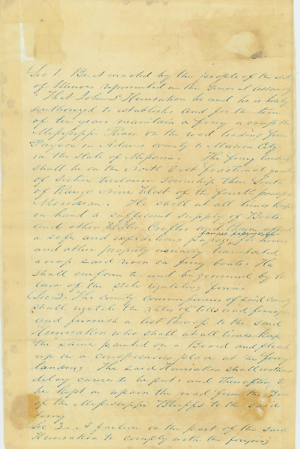 Sec 1 Be it enacted by the people of the State
of Illinois represented in the General Assembly
That John S. Hunsaker be and he is hereby
authorized to establish and for the term
of ten years maintain a ferry across the
Mississippi River on the road leading from
Payson in Adams county to Marion City
in the State of Missouri. The ferry landing
shall be on the North East fractional quarter
of Section Township Three South
of Range Nine West of the fourth principal
Meridian. He shall at all times keep
on hand a sufficient supply of Boats
and other Water Crafts
a safe and expeditious passage, for horses
and other property usually transported
across said river on ferry boats. He
shall conform to and be governed by the
laws of the State regulating ferries.
Sec 2. The county commissioners of said county
shall regulate the rates of tolls and ferriage
and furnish a list thereof to the said
Hunsaker who shall at all times keep
the same painted on a Board and placed
up in a conspicuous place at the ferry
landing. The said Hunsaker shall without
delay cause to be put and thereafter to
be kept up upon the road from the
of the Mississippi Bluffs to the said
ferry
Sec 3. A failure on the part of the said
Hunsaker to comply with the foregoing